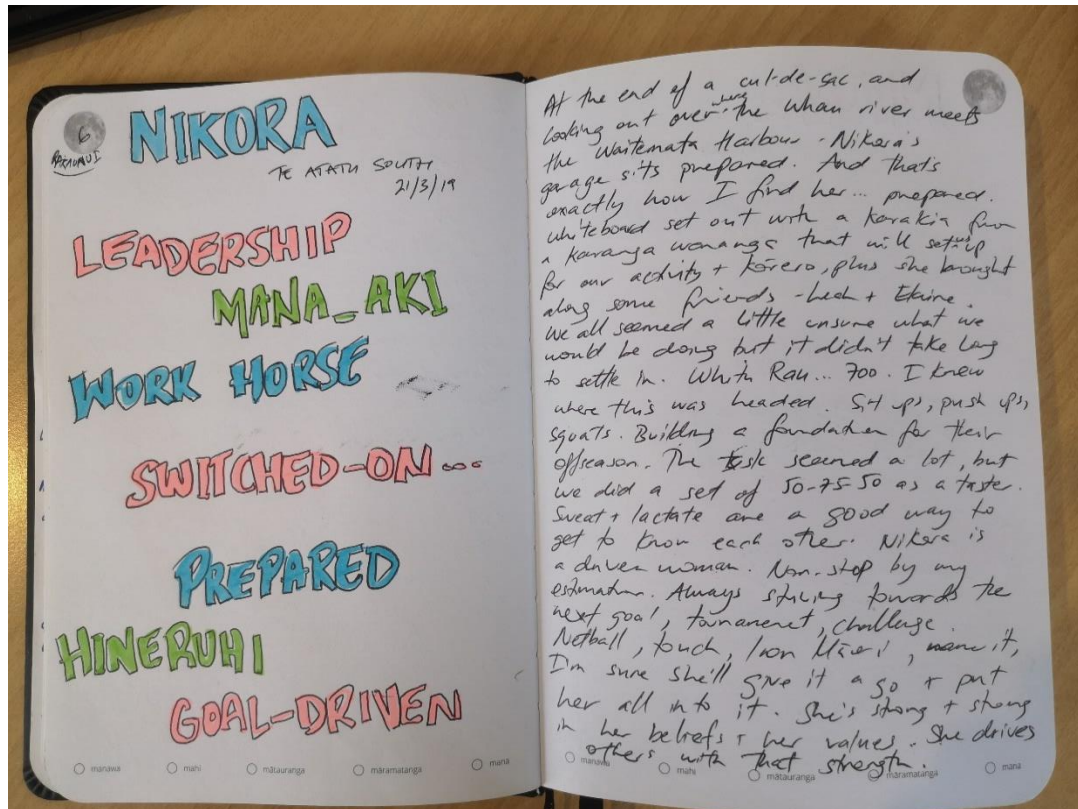 6
NIKORA
TE ATATU SOUTH
21/3/19
LEADERSHIP
MANA_AKI
WORK HORSE
SWITCHED-ON...
PREPARED
HINERUHI
GOAL-DRIVEN
manawa mahi mātauranga māramatanga mana
At the end of a cul-de-sac, and
looking out over where the Whau river meets
the Waitemata Harbour - Nikora's
garage sits prepared. And that's
exactly how I find her... prepared.
whiteboard set out with a karakia from
a karanga wananga that will set us up
for our activity + kōrero, plus she brought
along some friends - Leah + Elaine.
We all seemed a little unsure what we
would be doing but it didn't take long
to settle in. Whitu Rau... 700. I knew
where this was headed. Sit ups, push ups,
squats. Building a foundation for their
offseason. The task seemed a lot, but
we did a set of 50-75-50 as a taster.
Sweat + lactate are a good way to
get to know each other. Nikora is
a driven woman. Non-stop by my
estimation. Always striving towards the
next goal, tournament, challenge.
Netball, touch, Iron Māori, name it,
I'm sure she'll give it a go + put
her all into it. She's strong + strong
in her beliefs + her values. She drives
others with that strength.
manawa mahi mātauranga māramatanga mana